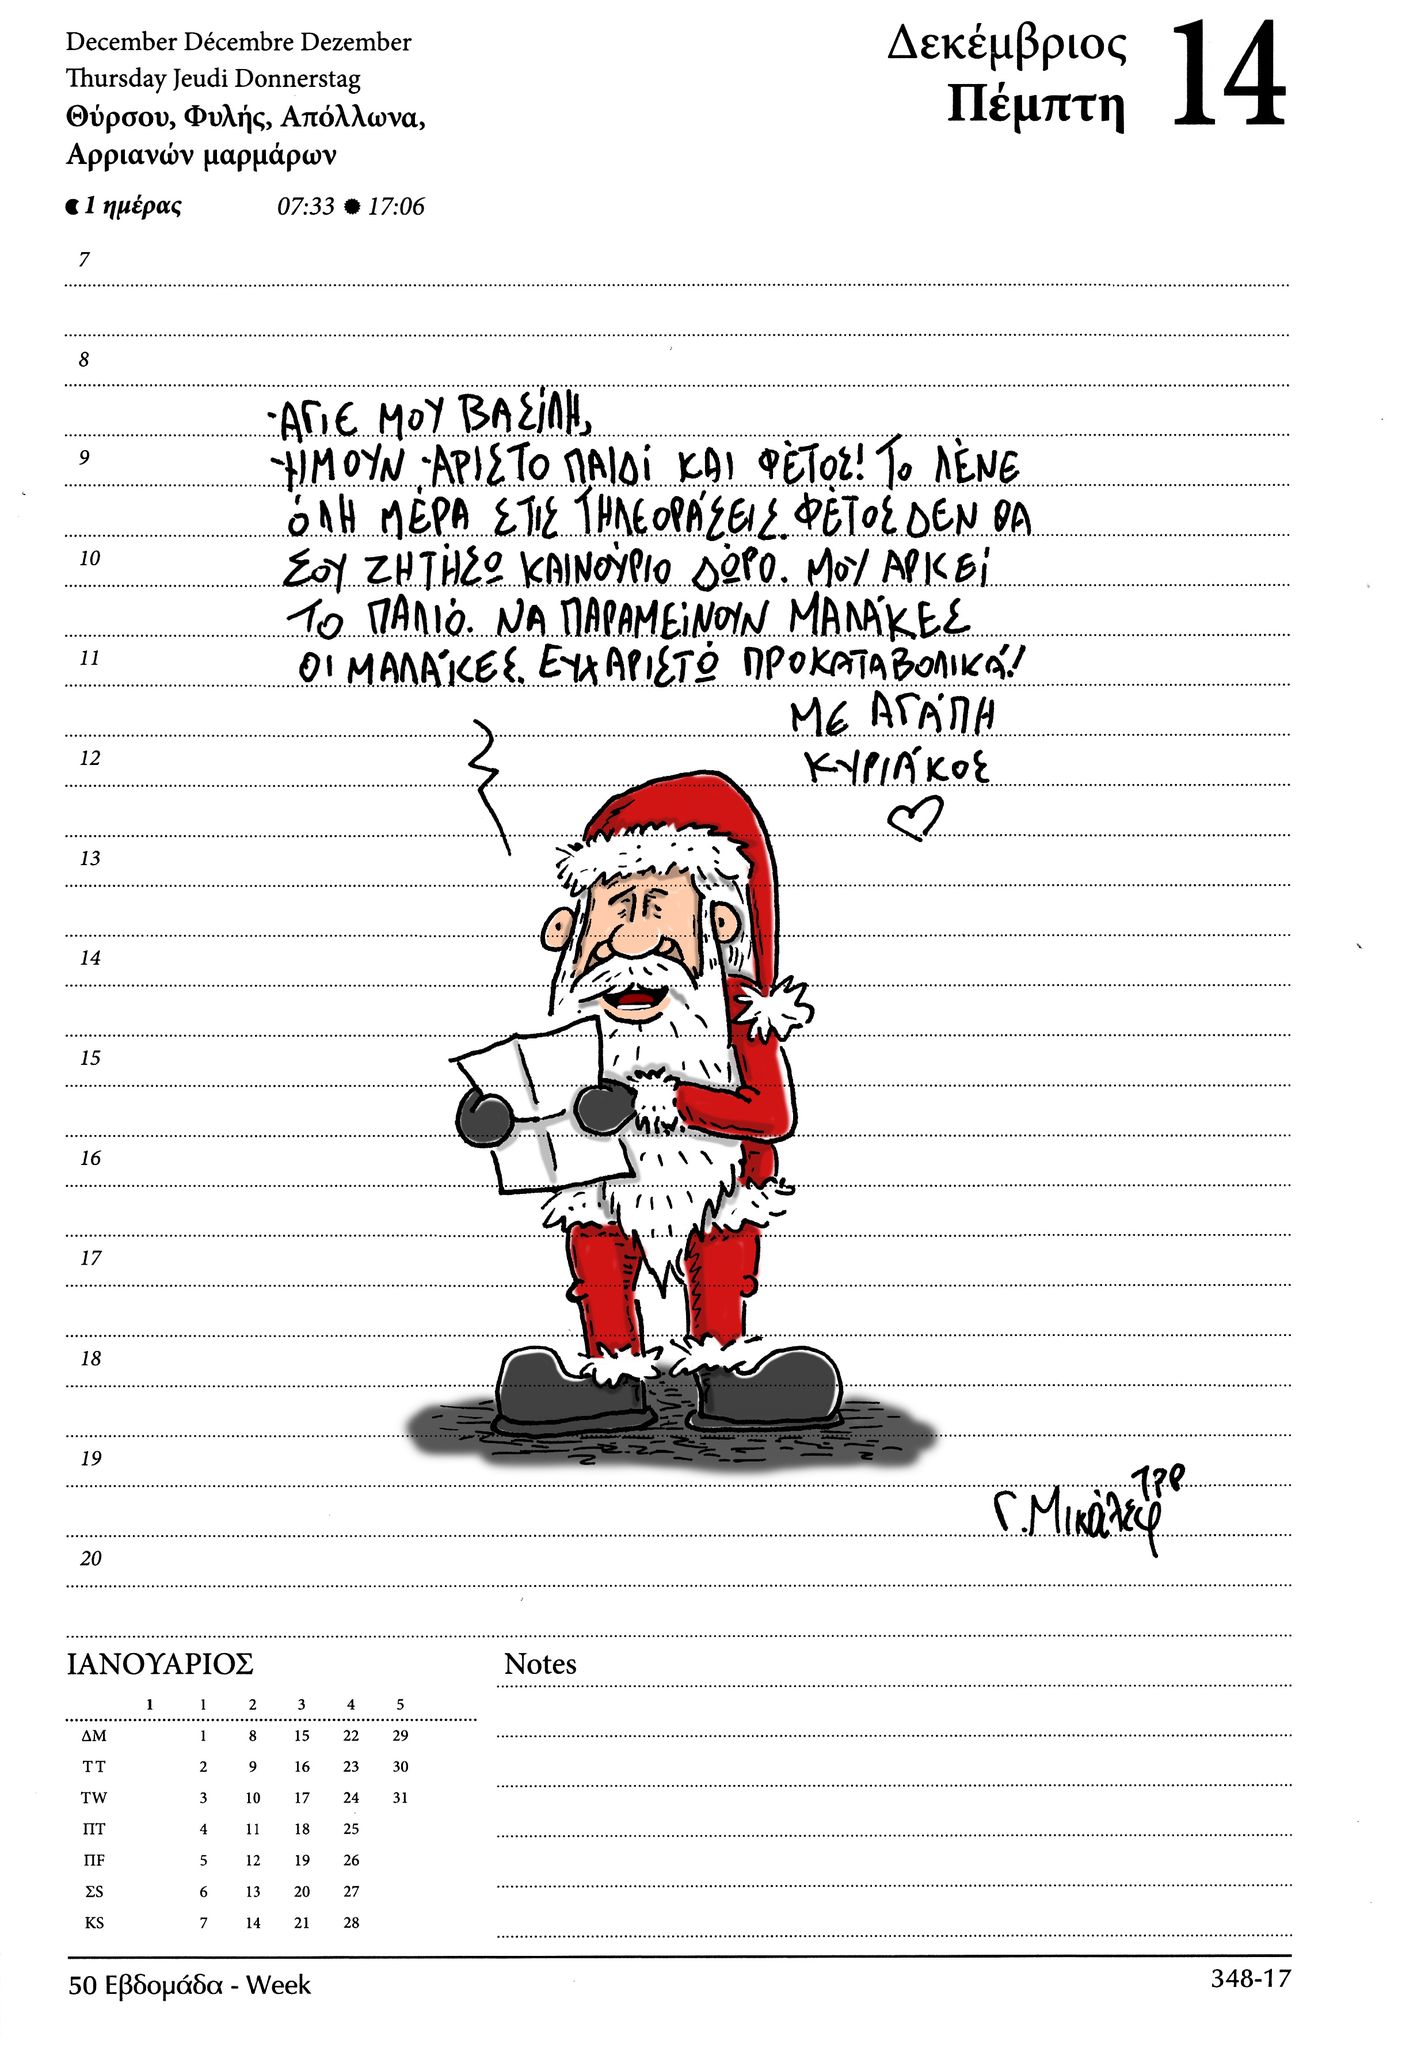 December Décembre Dezember
Thursday Jeudi Donnerstag
Θύρσου, Φυλής, Απόλλωνα,
Αρριανών μαρμάρων
1 ημέρας 07:33 17:06
Δεκέμβριος
Πέμπτη
14
7
8
ΆΓΙΕ ΜΟΥ ΒΑΣΊΛΗ,
9
ΉΜΟΥΝ ΆΡΙΣΤΟ ΠΑΙΔΊ ΚΑΙ ΦΈΤΟΣ! ΤΟ ΛΈΝΕ
ΌΛΗ ΜΈΡΑ ΣΤΙΣ ΤΗΛΕΟΡΆΣΕΙΣ. ΦΈΤΟΣ ΔΕΝ ΘΑ
10
ΣΟΥ ΖΗΤΉΣΩ ΚΑΙΝΟΎΡΙΟ ΔΏΡΟ. ΜΟΥ ΑΡΚΕΊ
ΤΟ ΠΑΛΙΌ. ΝΑ ΠΑΡΑΜΕΊΝΟΥΝ ΜΑΛΆΚΕΣ
11
ΟΙ ΜΑΛΆΚΕΣ. ΕΥΧΑΡΙΣΤΏ ΠΡΟΚΑΤΑΒΟΛΙΚΆ!
ΜΕ ΑΓΆΠΗ
12
ΚΥΡΙΆΚΟΣ
13
14
15
16
17
18
19
Γ. Μικάλεφ
20
ΙΑΝΟΥΑΡΙΟΣ
1 1 2 3 4 5
ΔΜ 1 8 15 22 29
ΤΤ 2 9 16 23 30
TW 3 10 17 24 31
ΠΤ 4 11 18 25
ΠF 5 12 19 26
ΣS 6 13 20 27
KS 7 14 21 28
Notes
50 Εβδομάδα - Week
348-17